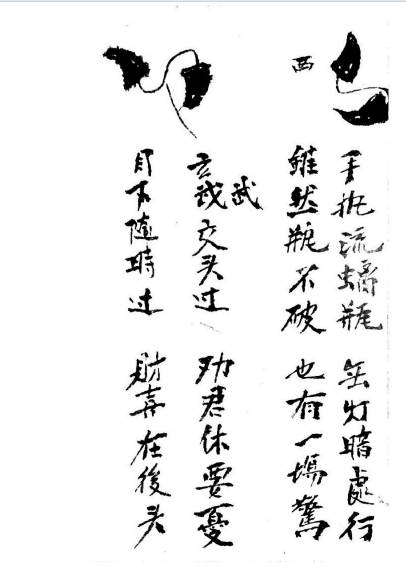 西
手执流璃瓶 無灯暗處行
雖然瓶不破 也有一塲驚
武
玄武交头过 劝君休要憂
目下隨時过 財喜在後头